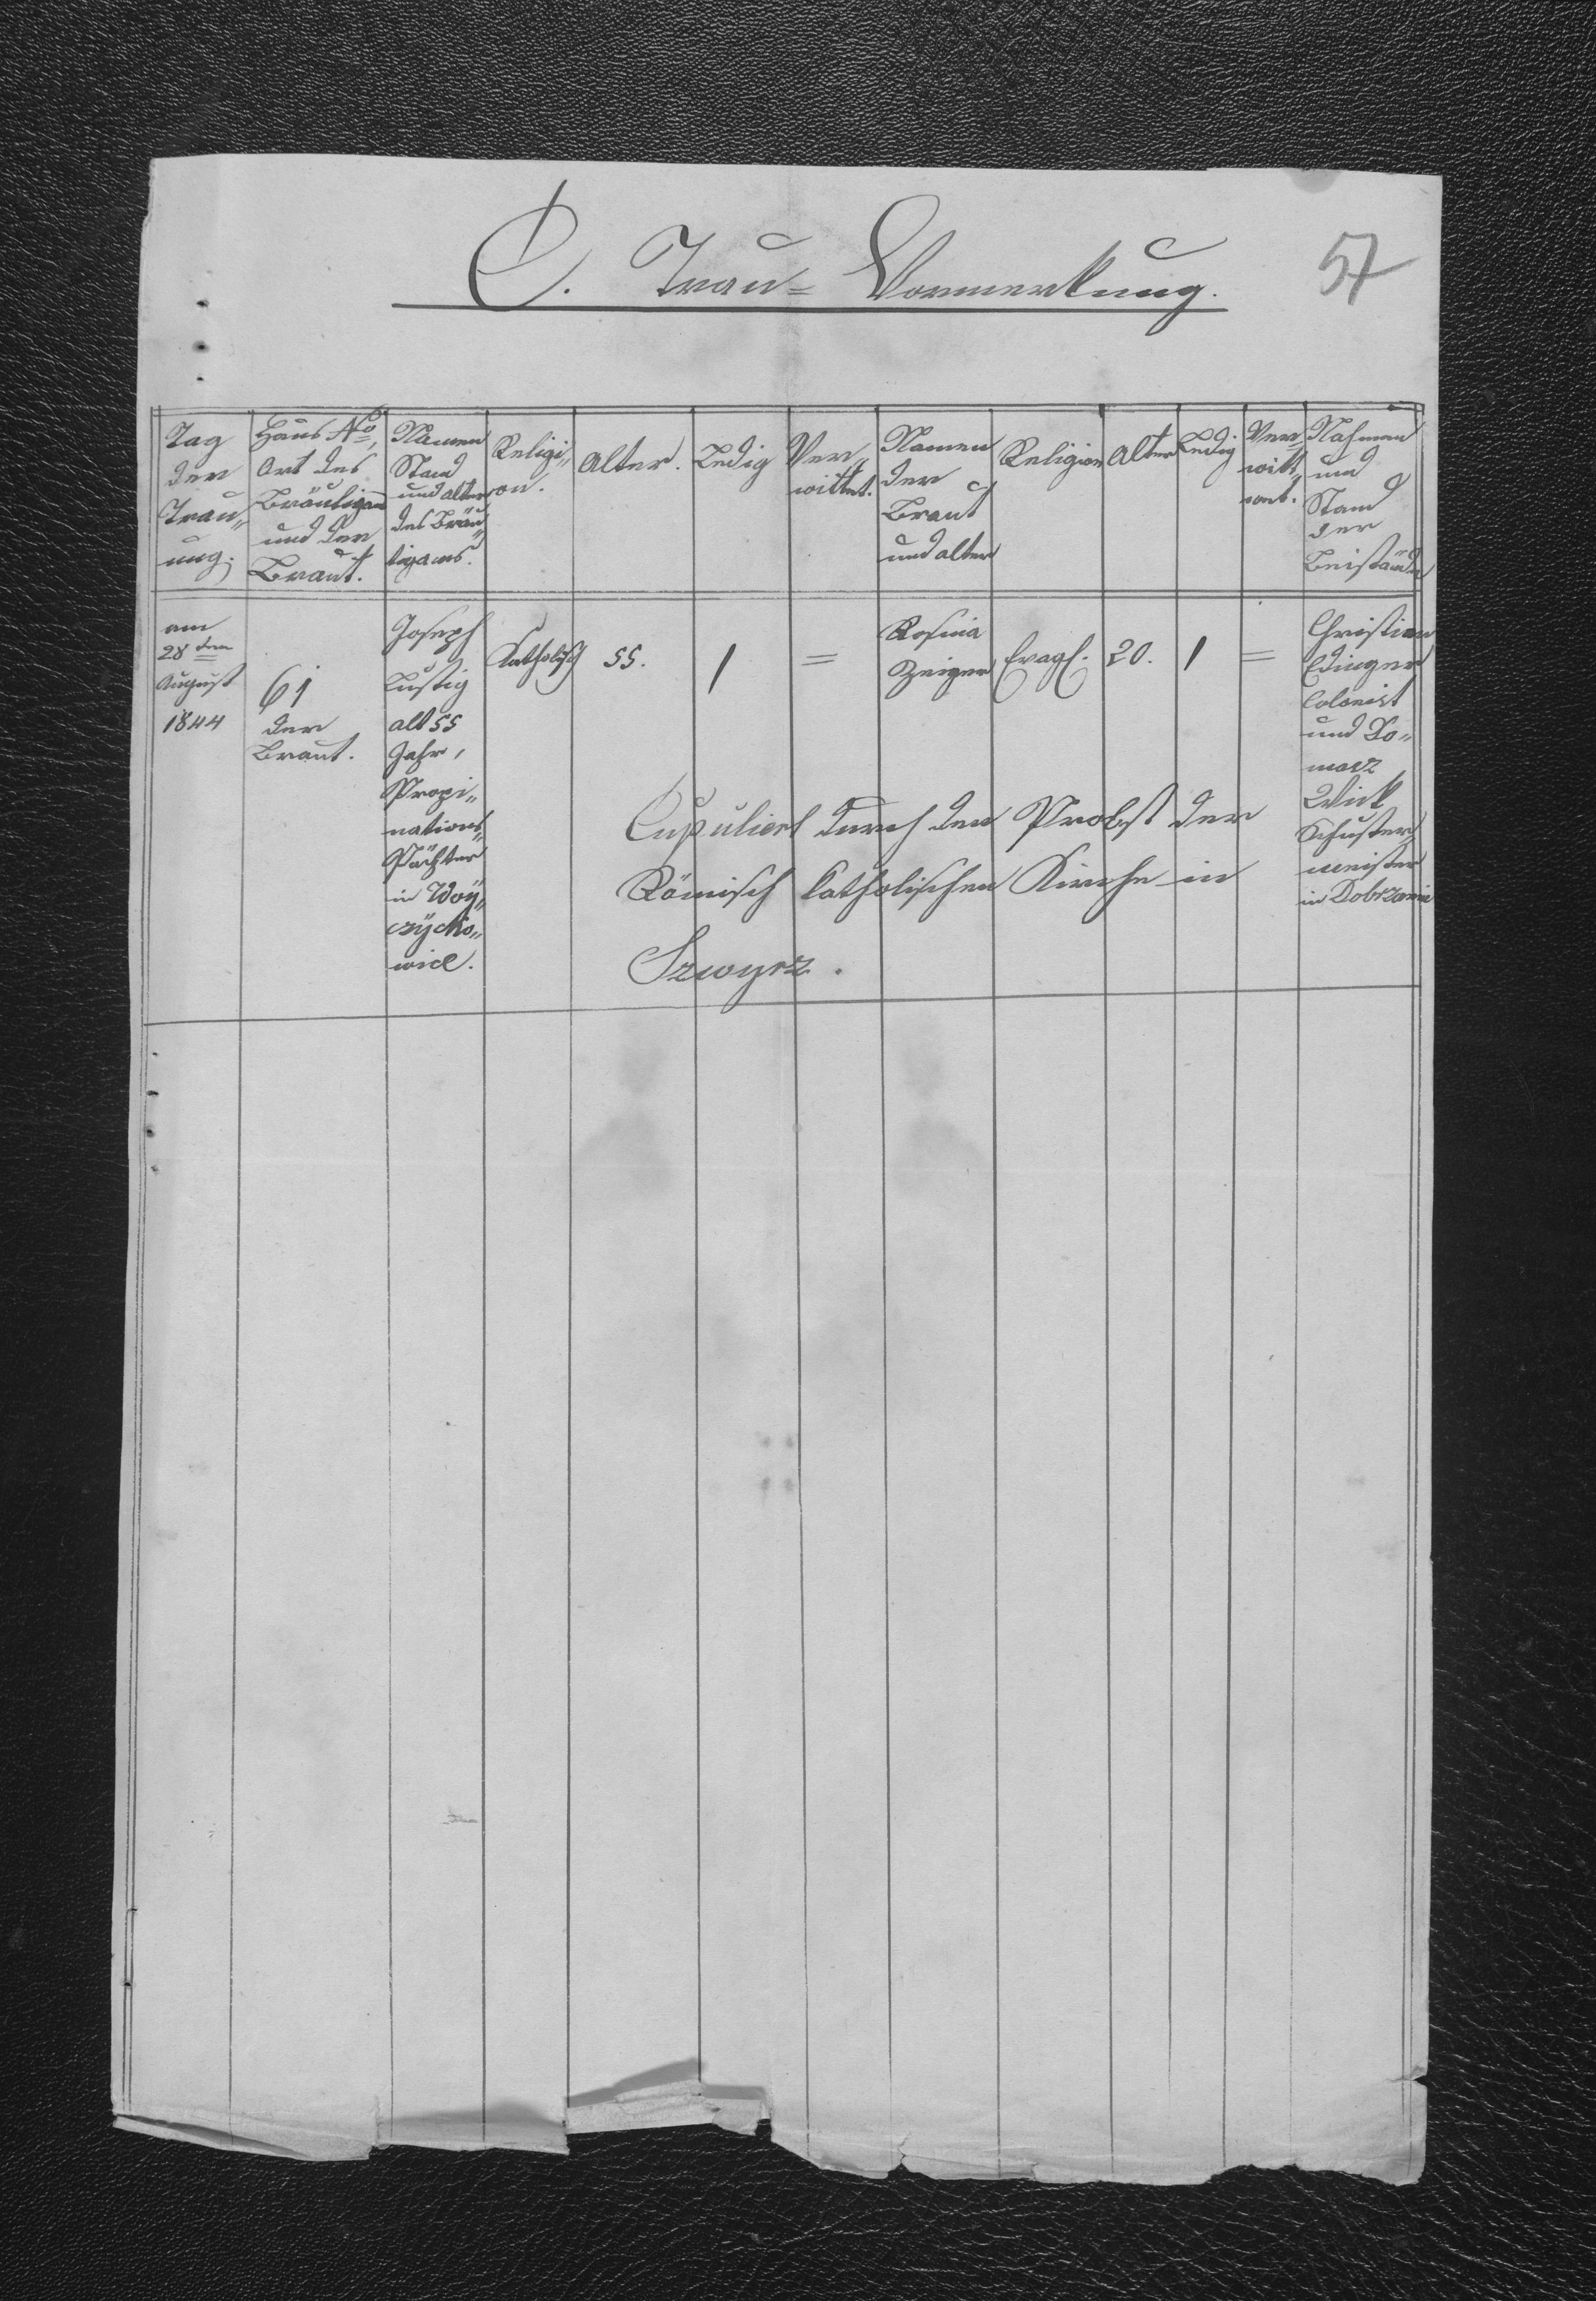 C. Trau= Vormerkung.
57
Tag
der
Trau„
ung.
Haus No,
Ort des
Bräutigams
und der
Braut.
Namen
Stand
und alter
des Bräu„
tigams.
Religi„
on.
Alter.
Ledig
Ver„
wittet.
Namen
der
Braut
und alter
Religion
Alter
Ledig
Ver„
witt„
wet.
Nahmen
und
Stand
der
Beistände
am
28 ten
August
1844
61
der
Braut.
Joseph
Lustig
alt 55
Jahr,
Propi„
nations„
Pächter
in Woÿ„
czÿcho„
wice.
Katholisch
55.
1
=
Rosina
Zeiger
Evagl.
20.
1
=
Christian
Edinger
Colonist
und To„
masz
Wilk
Schuster„
meister
in Dobrzanica
Cupuliert durch den Probst der
Römisch Katholischen Kirche in
Szwyrz.